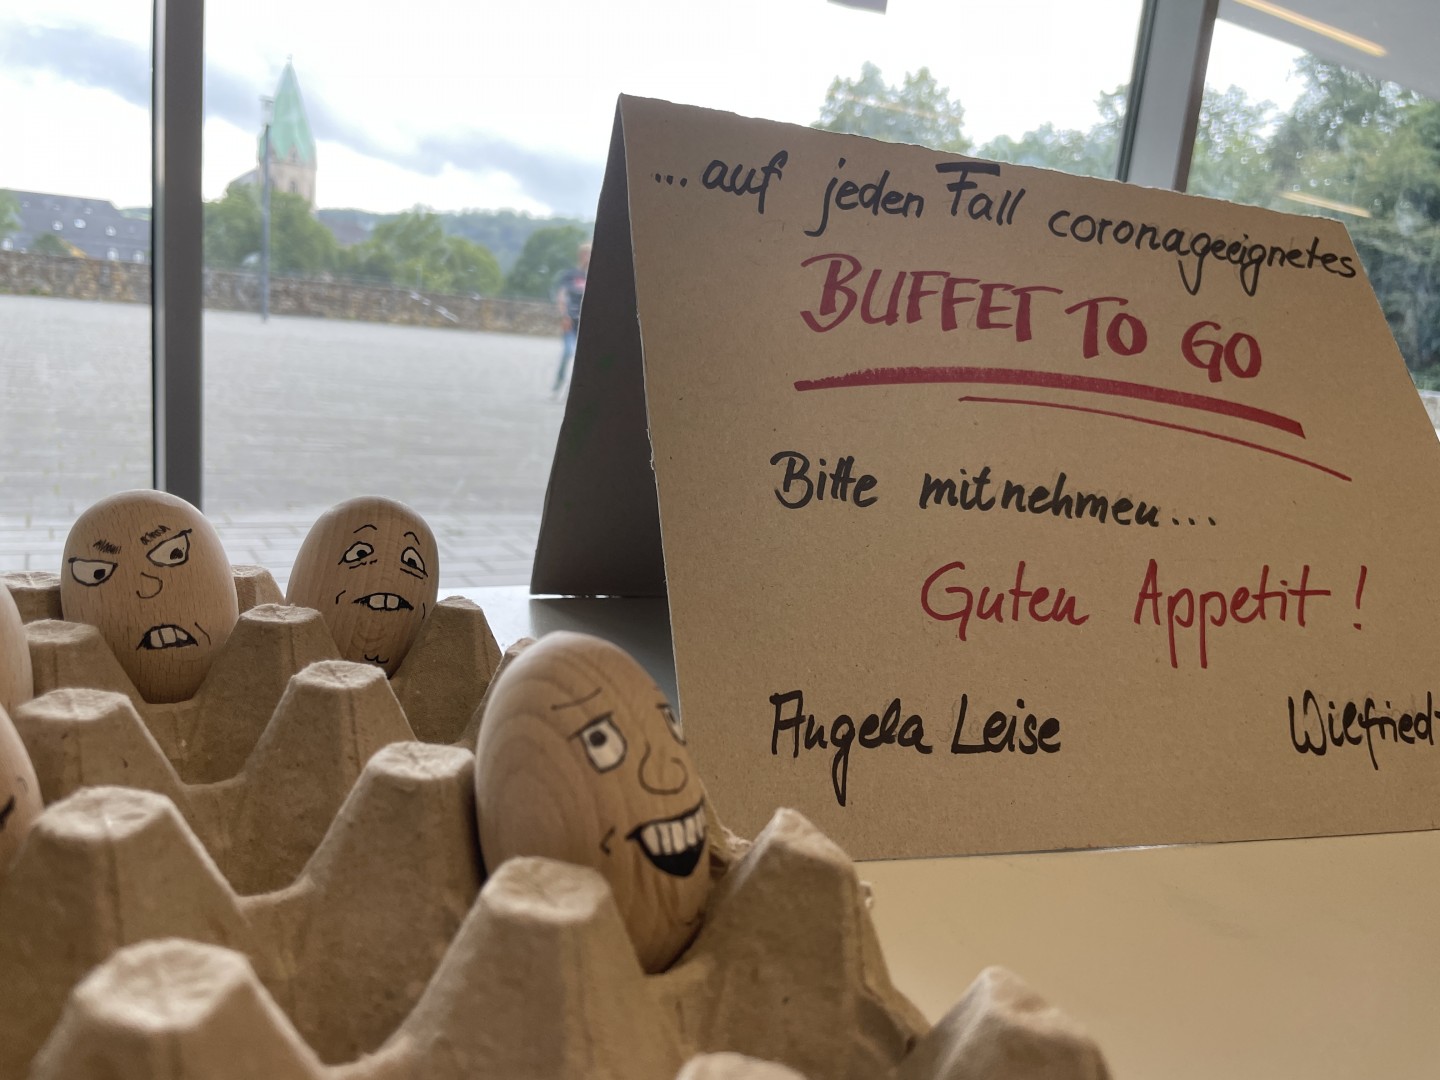 ...auf jeden Fall coronageeignetes
BUFFET TO GO
Bitte mitnehmen...
Guten Appetit!
Angela Leise Wilfried